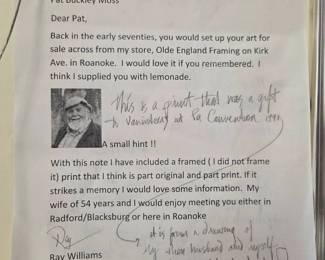 Pat Buckley Moss
Dear Pat,
Back in the early seventies, you would set up your art for
sale across from my store, Olde England Framing on Kirk
Ave. in Roanoke. I would love it if you remembered. I
think I supplied you with lemonade.
This is a print that was a gift
to at Convention
A small hint !!
With this note I have included a framed ( I did not frame
it) print that I think is part original and part print. If it
strikes a memory I would love some information. My
wife of 54 years and I would enjoy meeting you either in
Radford/Blacksburg or here in Roanoke
Ray
it is from a drawing of
my husband and myself
Ray Williams